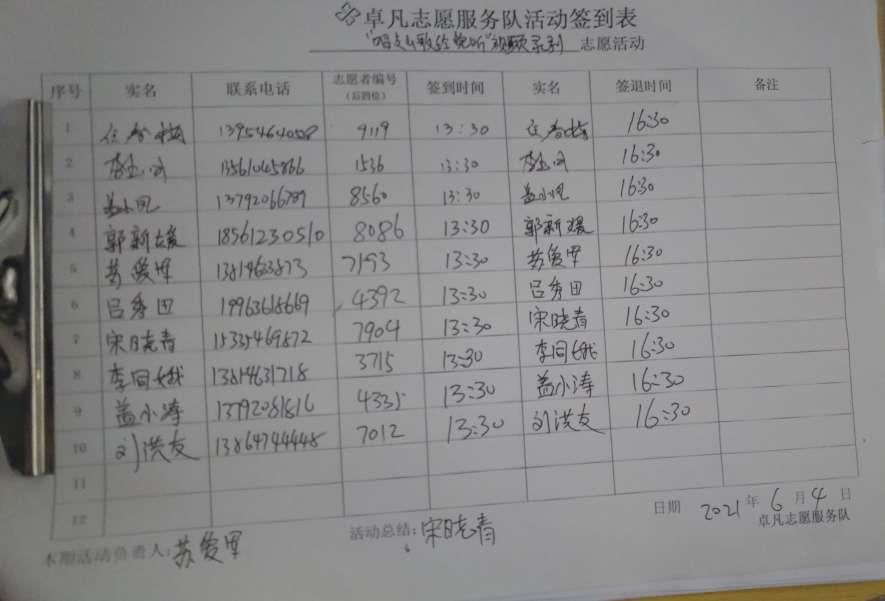 卓凡志愿服务队活动签到表
视频系列 志愿活动
序号 实名 联系电话 志愿者编号（后四位） 签到时间 实名 签退时间 备注
1 13954640508 9119 13:30 16:30
2 13561045866 1536 13:30 16:30
3 盖小凤 13792066789 8560 13:30 盖小凤 16:30
4 郭新媛 18561230510 8086 13:30 郭新媛 16:30
5 苏俊军 13814623873 7193 13:30 苏俊军 16:30
6 吕秀田 19963618669 4392 13:30 吕秀田 16:30
7 宋晓青 15335469872 7904 13:30 宋晓青 16:30
8 李同娥 13814631718 3715 13:30 李同娥 16:30
9 盖小涛 13792081816 4335 13:30 盖小涛 16:30
10 刘洪友 13864744448 7012 13:30 刘洪友 16:30
11
12
日期 2021年6月4日
本期活动负责人：苏俊军 活动总结：宋晓青 卓凡志愿服务队